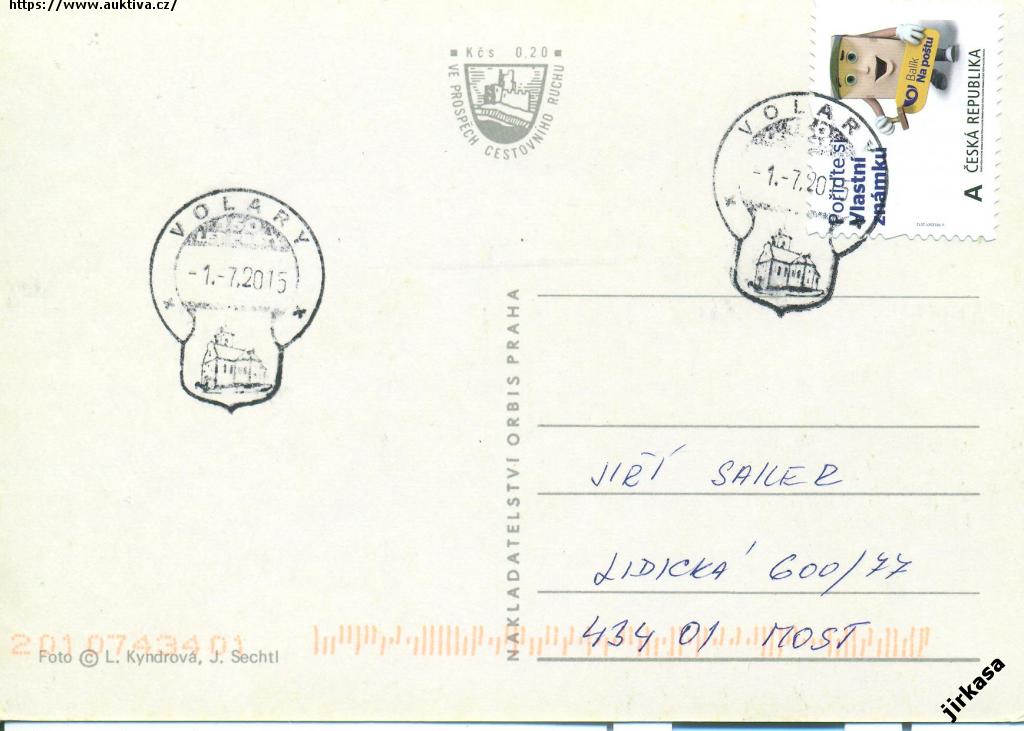 https://www.auktiva.cz/
Kčs 0,20
VE PROSPĚCH CESTOVNÍHO RUCHU
Balík
Na poštu
A ČESKÁ REPUBLIKA
Pořiďte si
Vlastní
známku
VOLARY
-1.-7.2015
VOLARY
-1.-7.2015
NAKLADATELSTVÍ ORBIS PRAHA
JIŘÍ SAILER
LIDICKÁ 600/77
434 01 MOST
2010743401
Foto © L. Kyndrová, J. Sechtl
jirkasa